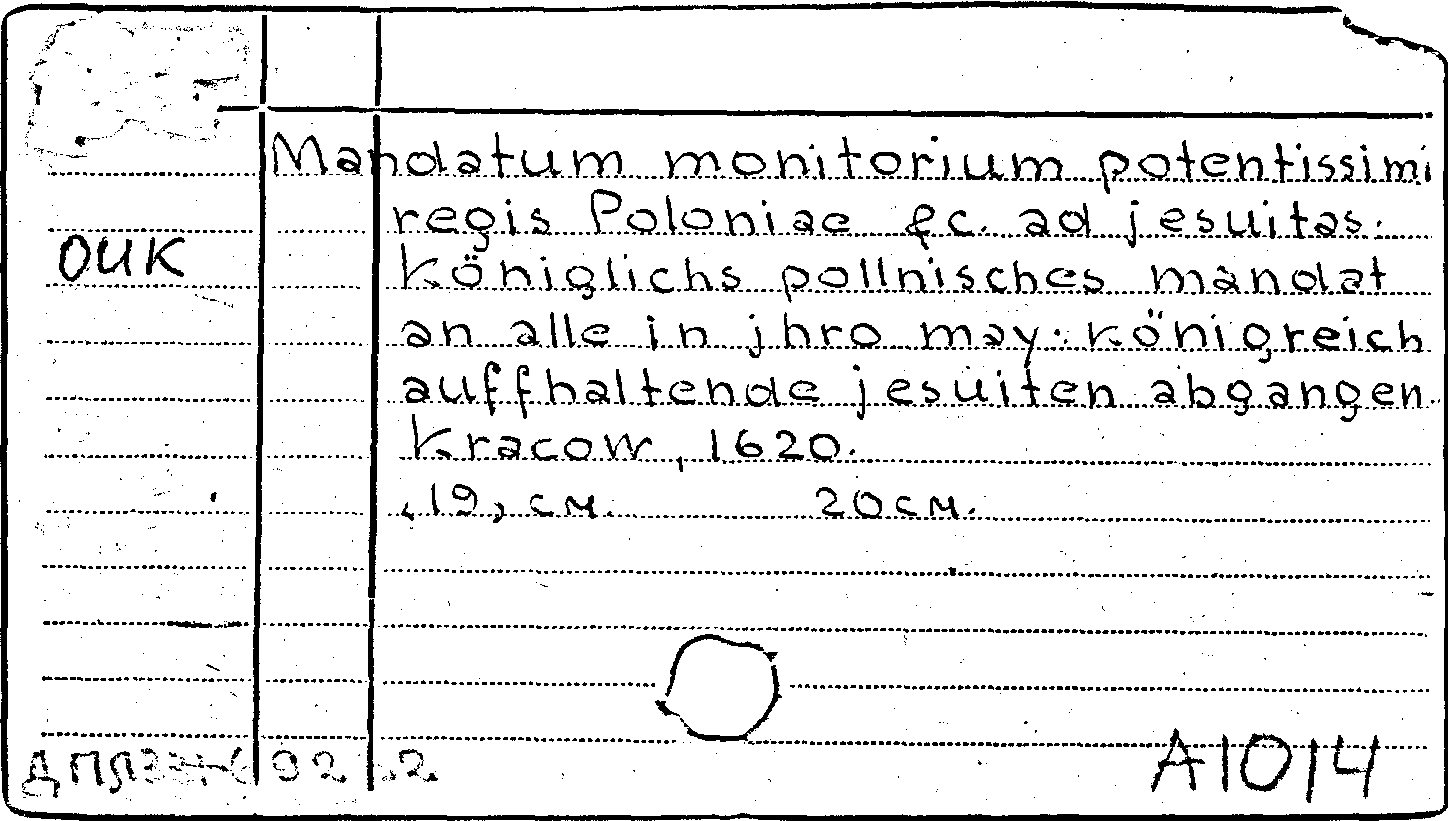 Mandatum monitorium potentissimi
regis Poloniae &c. ad jesuitas.
ОИК
Königlichs pollnisches mandat
an alle in jhro may: königreich
auffhaltende jesuiten abgangen.
Kracow, 1620.
,19, см. 20см.
A1014